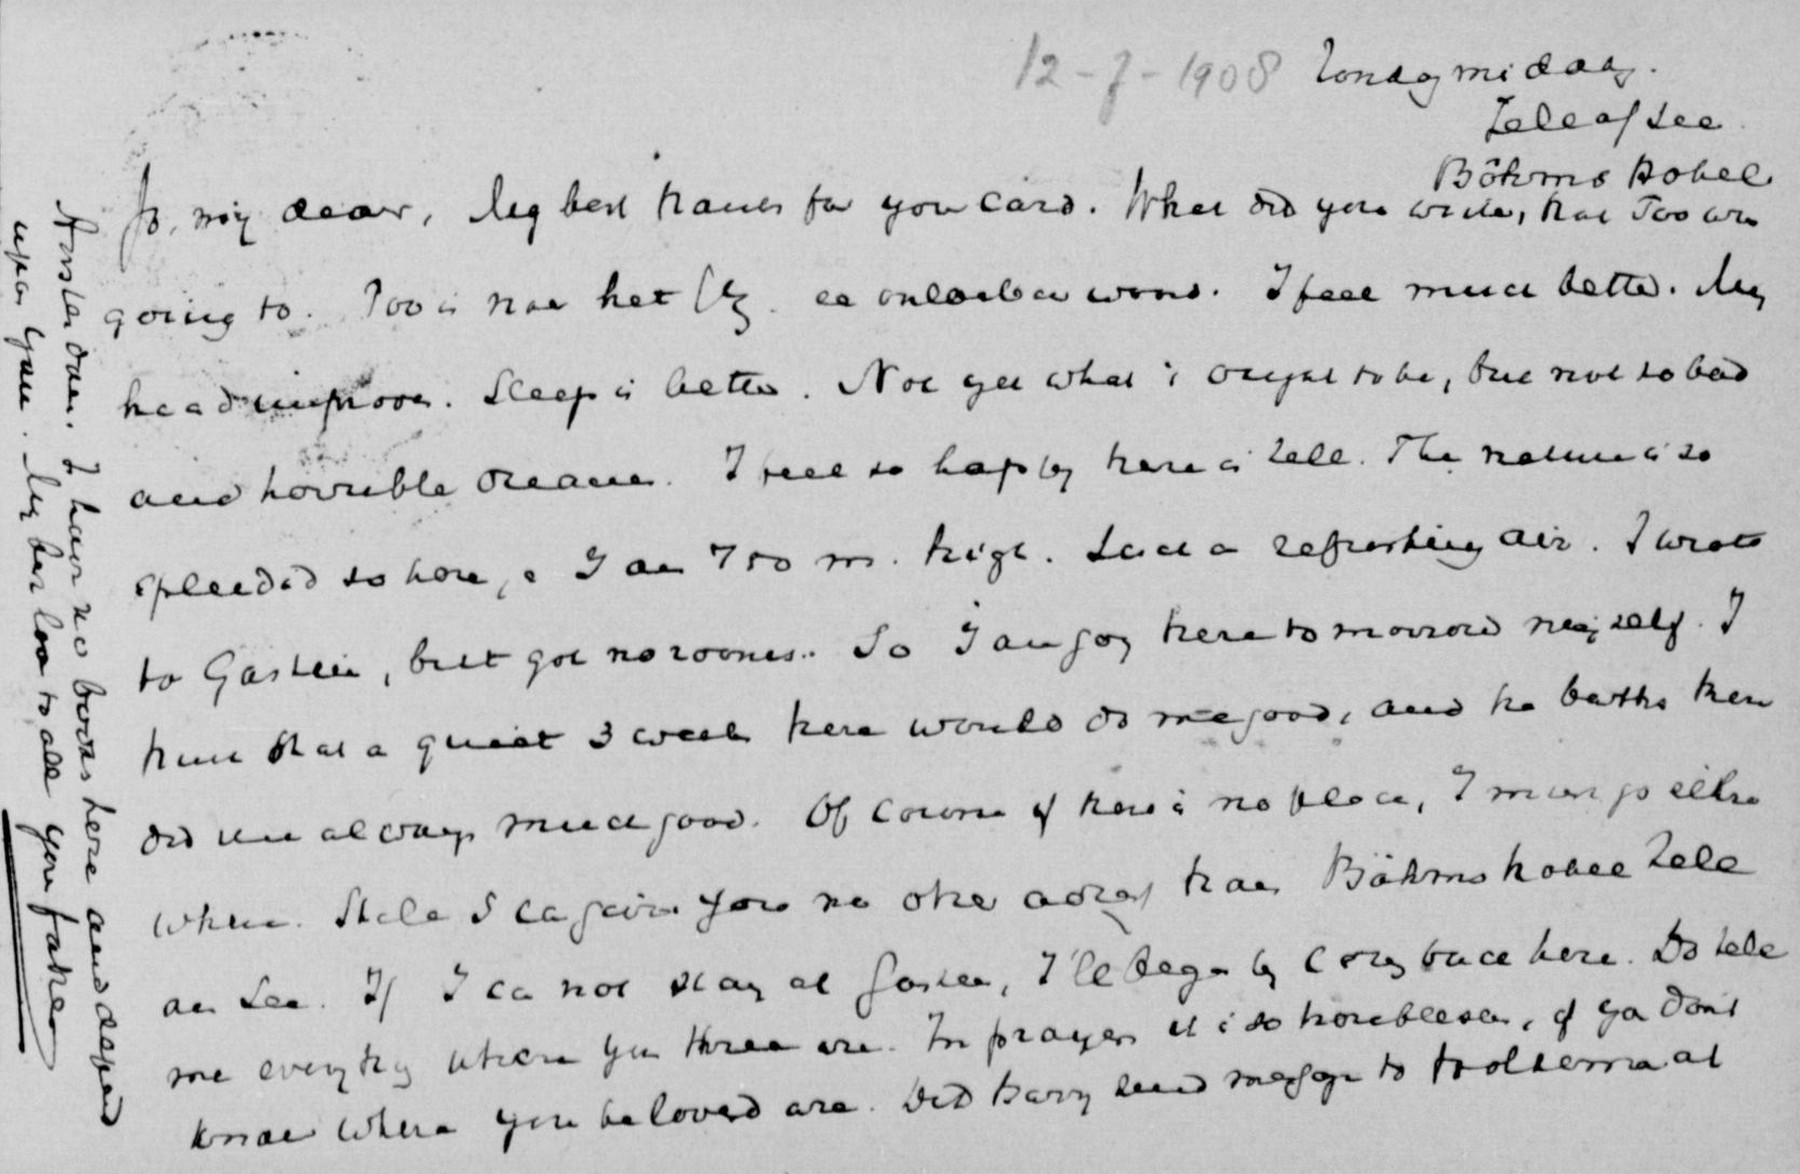 12-7-1908 Zondagmiddag.
Zell a/ See
Böhms Hotel
Jo, my dear, My best thanks for your card. What did you write, that Too was
going to. Too is not het wond. I feel much better. My
head improves. Sleep is better. Not yet what is ought to be, but not so bad
and horrible dreams. I feel so happy here is Zell. The nature is so
splendid so here, I am 750 m. high. Such a refreshing air. I wrote
to Gastein, but got no rooms. So I am going there to morrow myself. I
think that a quiet 3 weeks there would do me good, and the baths there
did me always much good. Of course if there is no place, I must go else
where. Still I can give you no other adress than Böhms hotel Zell
am See. If I can not stay at Gastein, I'll by coming back here. Do tell
me everything where you three are. In prayers it is so troublesome, if you don't
know where you beloved are. Did Harry send message to at
Amsterdam. I have no books here and depend
upon you. My best love to all your father